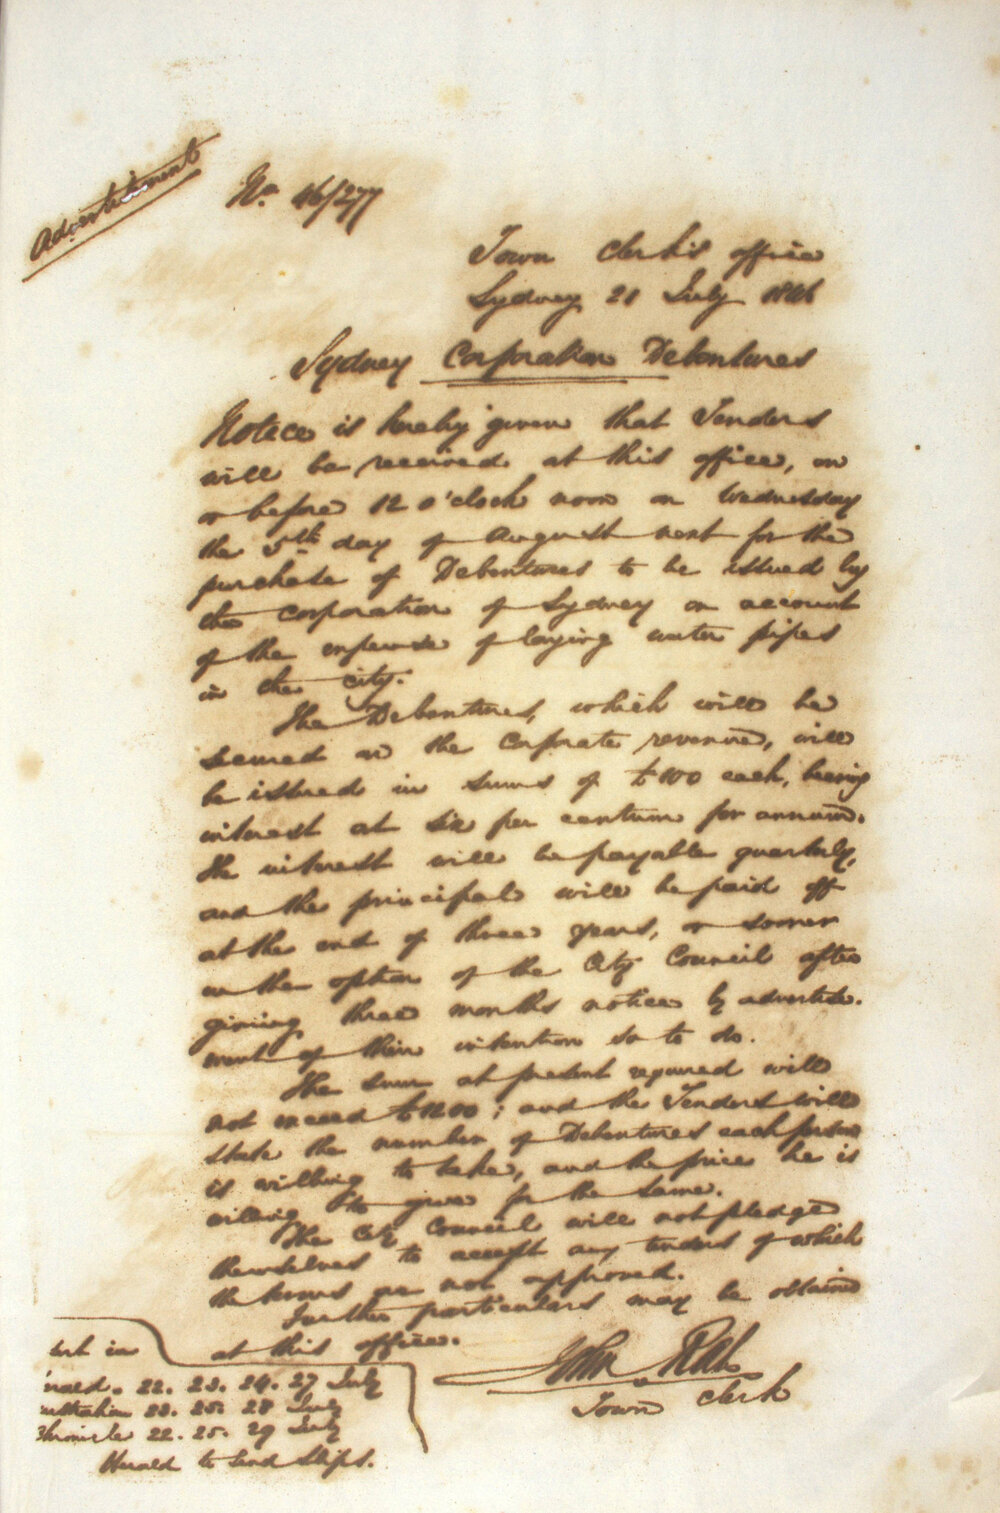 Advertisement
No. 46/277
Town Clerk's office
Sydney 21 July 1846
Sydney Corporation Debentures
Notice is hereby given that Tenders
will be received at this office, on
or before 12 o'clock noon on Wednesday
the 5th day of August next for the
purchase of Debentures to be issued by
the corporation of Sydney on account
of the expense of laying water pipes
in the city.
The Debentures, which will be
secured on the corporate revenue, will
be issued in sums of £100 each, bearing
interest at six per centum per annum.
the interest will be payable quarterly,
and the principal will be paid off
at the end of three years, or sooner
on the option of the City Council after
giving three months notice by advertise-
ment of their intention so to do.
The sum at present required will
not exceed £1200; and the Tenders will
state the number of Debentures each person
is willing to take, and the price he is
willing to give for the same.
The City Council will not pledge
themselves to accept any tenders of which
the terms are not approved.
Further particulars may be obtained
at this office.
John Rae
Town Clerk
in
erald. 22. 23. 24. 27 July
ustralian 23. 25. 28 July
Chronicle 22. 25. 29 July
Herald to send Slips.